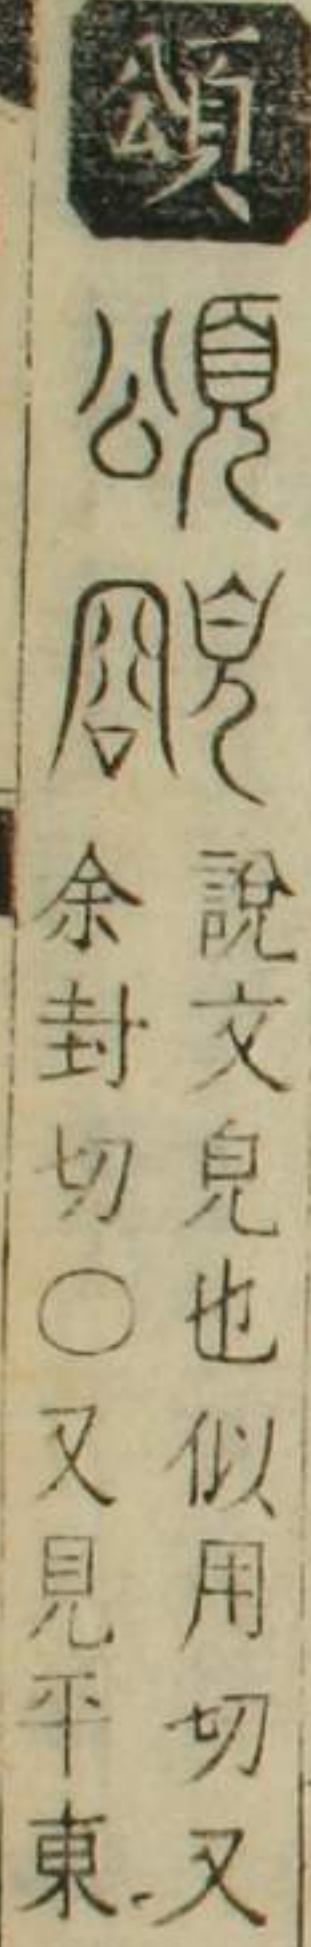 頌
頌 䫉
說文皃也似用切又
余封切〇又見平東